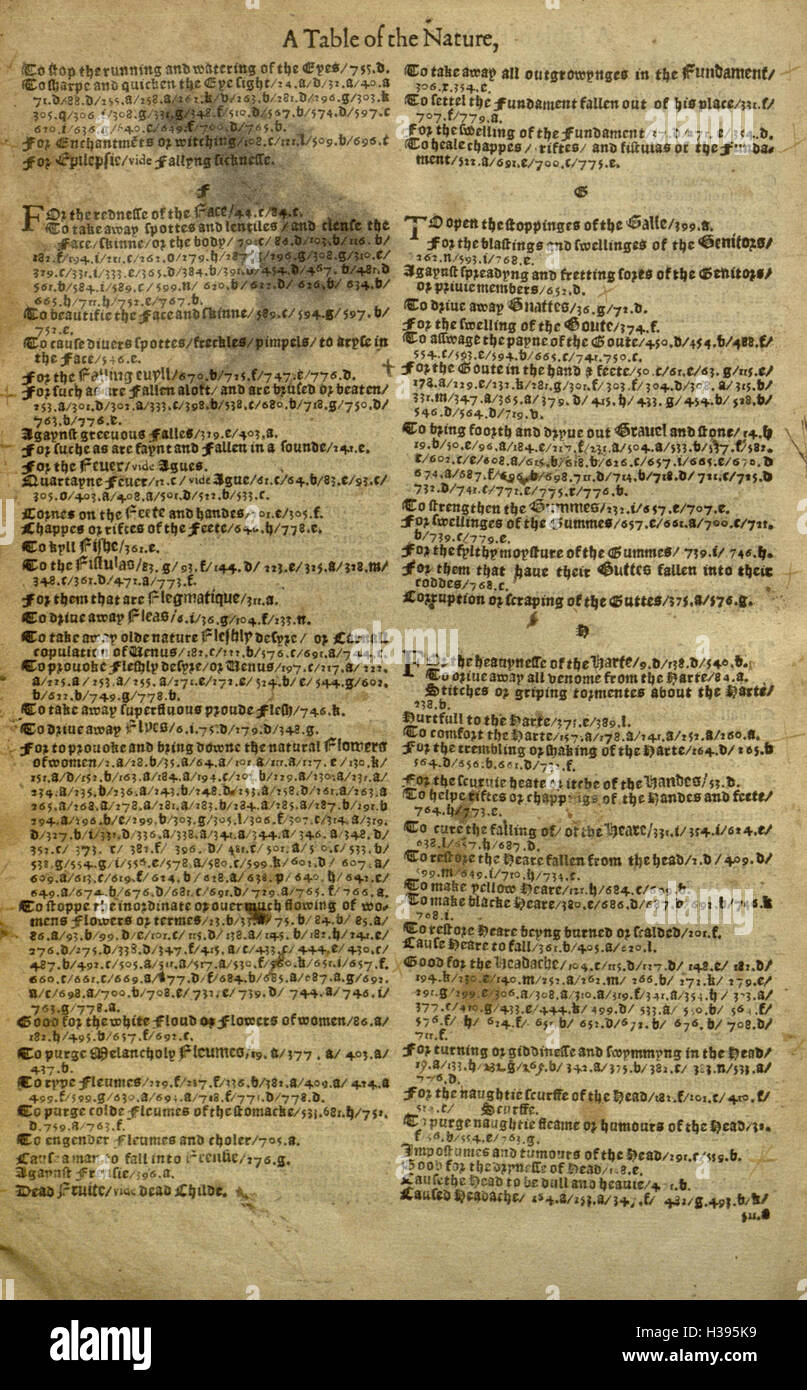 A Table of the Nature,
To stop the running and watering of the Eyes/755.d.
To sharpe and quicken the Eye sight/24.a/d/32.a/40.a
71.d/88.d/255.a/258.a/262.k/d/263.b/281.d/296.g/303.k
305.q/306.f/308.g/331.g/348.f/510.d/567.b/574.d/597.c
610.i/636.a/640.c/649.f/700.d/765.b.
For Enchantmēts or witching/108.c/121.l/509.b/696.t
For Epilepsie/vide Fallyng sicknesse.
F
FOr the rednesse of the Face/44.c/84.c.
To take away spottes and lentiles/and clense the
Face/skinne/or the body/70.c/86.d/103.b/116.b/
329.c/331.i/333.c/365.d/384.b/391.b/454.d/467.b/481.d
561.b/584.i/589.c/599.n/620.b/622.d/626.b/634.b/
665.h/711.h/752.e/767.b.
To beautifie the Face and skinne/589.c/594.g/597.b/
752.e.
To cause divers spottes/freckles/pimpels/to aryse in
the Face/546.e.
For the Falling euyll/670.b/725.f/747.e/776.d.
For such as are Fallen aloft/and are brused or beaten/
253.a/301.d/302.a/333.c/398.b/538.c/680.b/718.g/750.d/
763.b/776.e.
Agaynst greeuous Falles/329.e/403.a.
For suche as are faynt and Fallen in a sounde/241.e.
For the Feuer/vide Agues.
Quartayne Feuer/12.c/vide Ague/61.c/64.b/83.e/93.c/
305.o/403.a/408.a/501.d/522.b/533.c.
Cornes on the Feete and handes/201.e/305.f.
Chappes or riftes of the Feete/646.h/778.e.
To kyll Fishe/361.e.
To the Fistulas/83.g/93.f/144.d/223.e/325.a/328.m/
348.c/361.d/471.a/773.f.
For them that are Flegmatique/311.a.
To take away Fleas/6.i/36.g/104.f/233.n.
To take away olde nature Fleshly desyre/or
copulation of Venus/182.c/222.b/576.c/691.a/
To prouoke Fleshly desyre/or Venus/197.c/217.a/222.a
a/225.a/253.a/255.a/271.e/272.e/524.b/e/544.g/602.
b/622.b/749.g/778.b.
To take away superfluous proude Flesh/746.k.
To driue away Flyes/6.i.75.d/279.d/348.g.
For to prouoke and bring downe the natural Flowers
of women/2.a/28.b/35.a/64.a/101.a/111.a/127.c/130.k/
151.a/d/152.b/163.a/184.a/194.c/201.b/229.a/230.a/231.a/
234.a/235.b/236.a/243.b/248.d/253.a/258.d/261.a/263.a
265.a/268.a/278.a/281.a/283.b/284.a/285.a/287.b/291.b
294.a/296.b/e/299.b/303.g/305.l/306.f/307.c/314.a/319.
d/327.b/i/331.d/336.a/338.a/341.a/344.a/346.a/348.d/
352.c/373.c/382.f/396.d/481.c/501.a/510.c/533.b/
538.g/554.g/i/556.e/578.a/580.c/599.k/601.d/607.a/
609.a/613.c/619.f/624.b/628.a/638.p/640.h/642.c/
649.a/674.b/676.d/681.c/691.d/729.a/765.f/766.a.
To stoppe the inordinate or ouermuch flowing of wo-
mens Flowers or termes/23.b/33.a/75.b/84.b/85.a/
86.a/93.b/99.d/c/101.c/115.d/138.a/145.b/182.h/241.e/
276.d/275.d/338.d/347.f/415.a/c/433.c/444.e/430.c/
487.b/492.c/505.a/511.a/517.a/530.f/560.k/651.i/657.f.
660.c/661.c/669.a/677.d/f/684.b/685.a/687.a.g/692.
a/c/698.a/700.b/708.c/731.c/739.d/744.a/746.i/
763.g/778.a.
Good for the white Floud or Flowers of women/86.a/
182.h/495.b/657.f/692.c.
To purge Melancholy Fleumes/19.a/377.a/403.a/
437.b.
To rype Fleumes/229.f/237.f/336.b/382.a/409.a/424.a
499.f/599.g/630.a/694.a/718.f/771.d/778.d.
To purge colde Fleumes of the stomacke/533.681.h/752.
d.759.a/763.f.
To engender Fleumes and choler/705.a.
Cause a man to fall into Frensie/276.g.
Agaynst Frensie/396.a.
Dead Fruite/vide dead Childe.
To take away all outgrowynges in the Fundament/
306.r.354.e.
To settel the Fundament fallen out of his place/331.f/
707.f/779.a.
For the swelling of the Fundament
To heale chappes/riftes/and fistulas of the Funda-
ment/522.a/691.e/700.c/775.e.
G
TO open the stoppinges of the Galle/399.a.
For the blastings and swellings of the Genitors/
262.n/593.i/768.e.
Agaynst spreadyng and fretting sores of the Genitors/
or priuie members/652.d.
To driue away Gnattes/36.g/72.d.
For the swelling of the Goute/374.f.
To asswage the payne of the Goute/450.d/454.b/488.f/
554.c/593.e/594.b/665.c/741.750.c.
For the Goute in the hand & feete/50.c/61.e/63.g/115.e/
178.a/229.e/232.k/281.g/301.f/303.f/304.d/308.a/315.b/
331.m/347.a/365.a/379.d/415.h/433.g/454.b/528.b/
546.d/564.d/719.b.
To bring foorth and dryue out Grauel and stone/14.h
19.b/50.e/96.a/184.e/217.f/231.a/504.a/533.b/537.f/582.
e/602.c/e/608.a/615.b/618.b/626.c/657.i/665.e/670.d
674.a/687.f/696.b/698.711.d/714.b/718.d/721.c/725.d
732.d/741.c/772.c/775.c/776.b.
To strengthen the Gummes/232.i/657.e/707.e.
For swellinges of the Gummes/657.e/661.a/700.c/721.
b/739.c/779.e.
For the fylthy moysture of the Gummes/739.i/746.h.
For them that haue their Guttes fallen into their
coddes/768.c.
Corruption or scraping of the Guttes/375.a/576.g.
H
the heauynesse of the Harte/9.d/138.d/540.b.
To driue away all venome from the Harte/84.a.
Stitches or griping tormentes about the Harte/
238.b.
Hurtfull to the Harte/371.e/389.l.
To comfort the Harte/157.a/178.a/241.a/252.a/260.a.
For the trembling or shaking of the Harte/264.d/265.b
564.d/656.b.661.d/731.f.
For the scuruie heate or itche of the Handes/53.d.
To helpe riftes or chappings of the Handes and feete/
764.h/773.e.
To cure the falling of/of the Heare/331.i/354.i/624.e/
638.l/657.h/687.d.
To restore the Heare fallen from the head/2.d/409.d/
599.m/649.i/710.h/734.c.
To make yellow Heare/121.h/684.c/
To make blacke Heare/380.e/686.d/687.b/692.b/706.k
708.i.
To restore Heare beyng burned or scalded/201.f.
Cause Heare to fall/361.b/405.a/620.l.
Good for the Headache/104.c/115.d/127.d/148.c/182.d/
194.k/230.c/140.m/252.a/262.m/266.b/272.k/279.c/
291.g/299.c/306.a/308.a/310.a/319.f/341.a/354.h/373.a/
377.c/410.g/433.c/444.k/499.d/533.a/540.b/561.f/
576.f/h/624.f/651.b/652.d/672.b/676.b/708.d/
711.f.
For turning or giddinesse and swymmyng in the Head/
19.a/133.h/232.g/265.b/342.a/375.b/382.c/383.n/533.a/
776.d.
For the naughtie scurffe of the Head/182.f/201.c/410.f/
Scurffe.
To purge naughtie fleame or humours of the Head/32.
f/56.b/554.e/763.g.
Impostumes and tumours of the Head/291.c/559.b.
Good for the drynesse of Head/128.e.
Cause the Head to be dull and heauie/4
Caused Headache/264.a/253.a/34
511.a